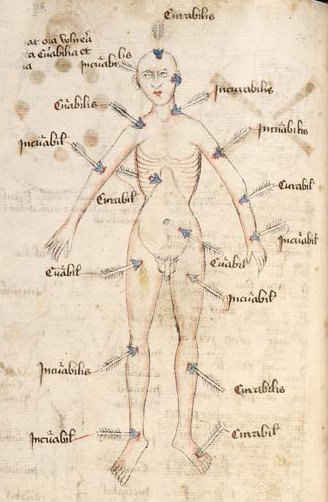 Curabilis
ta Cu͂abilia et
Incu͂abilis
Incurabilis
Cu͂abilis
Incu͂abilis
Incu͂abil
Curabil
Curabil
Incu͂abil
Cu͂abil
Cu͂abil
Incu͂abil
Incu͂abilis
Curabilis
Incu͂abil
Curabil